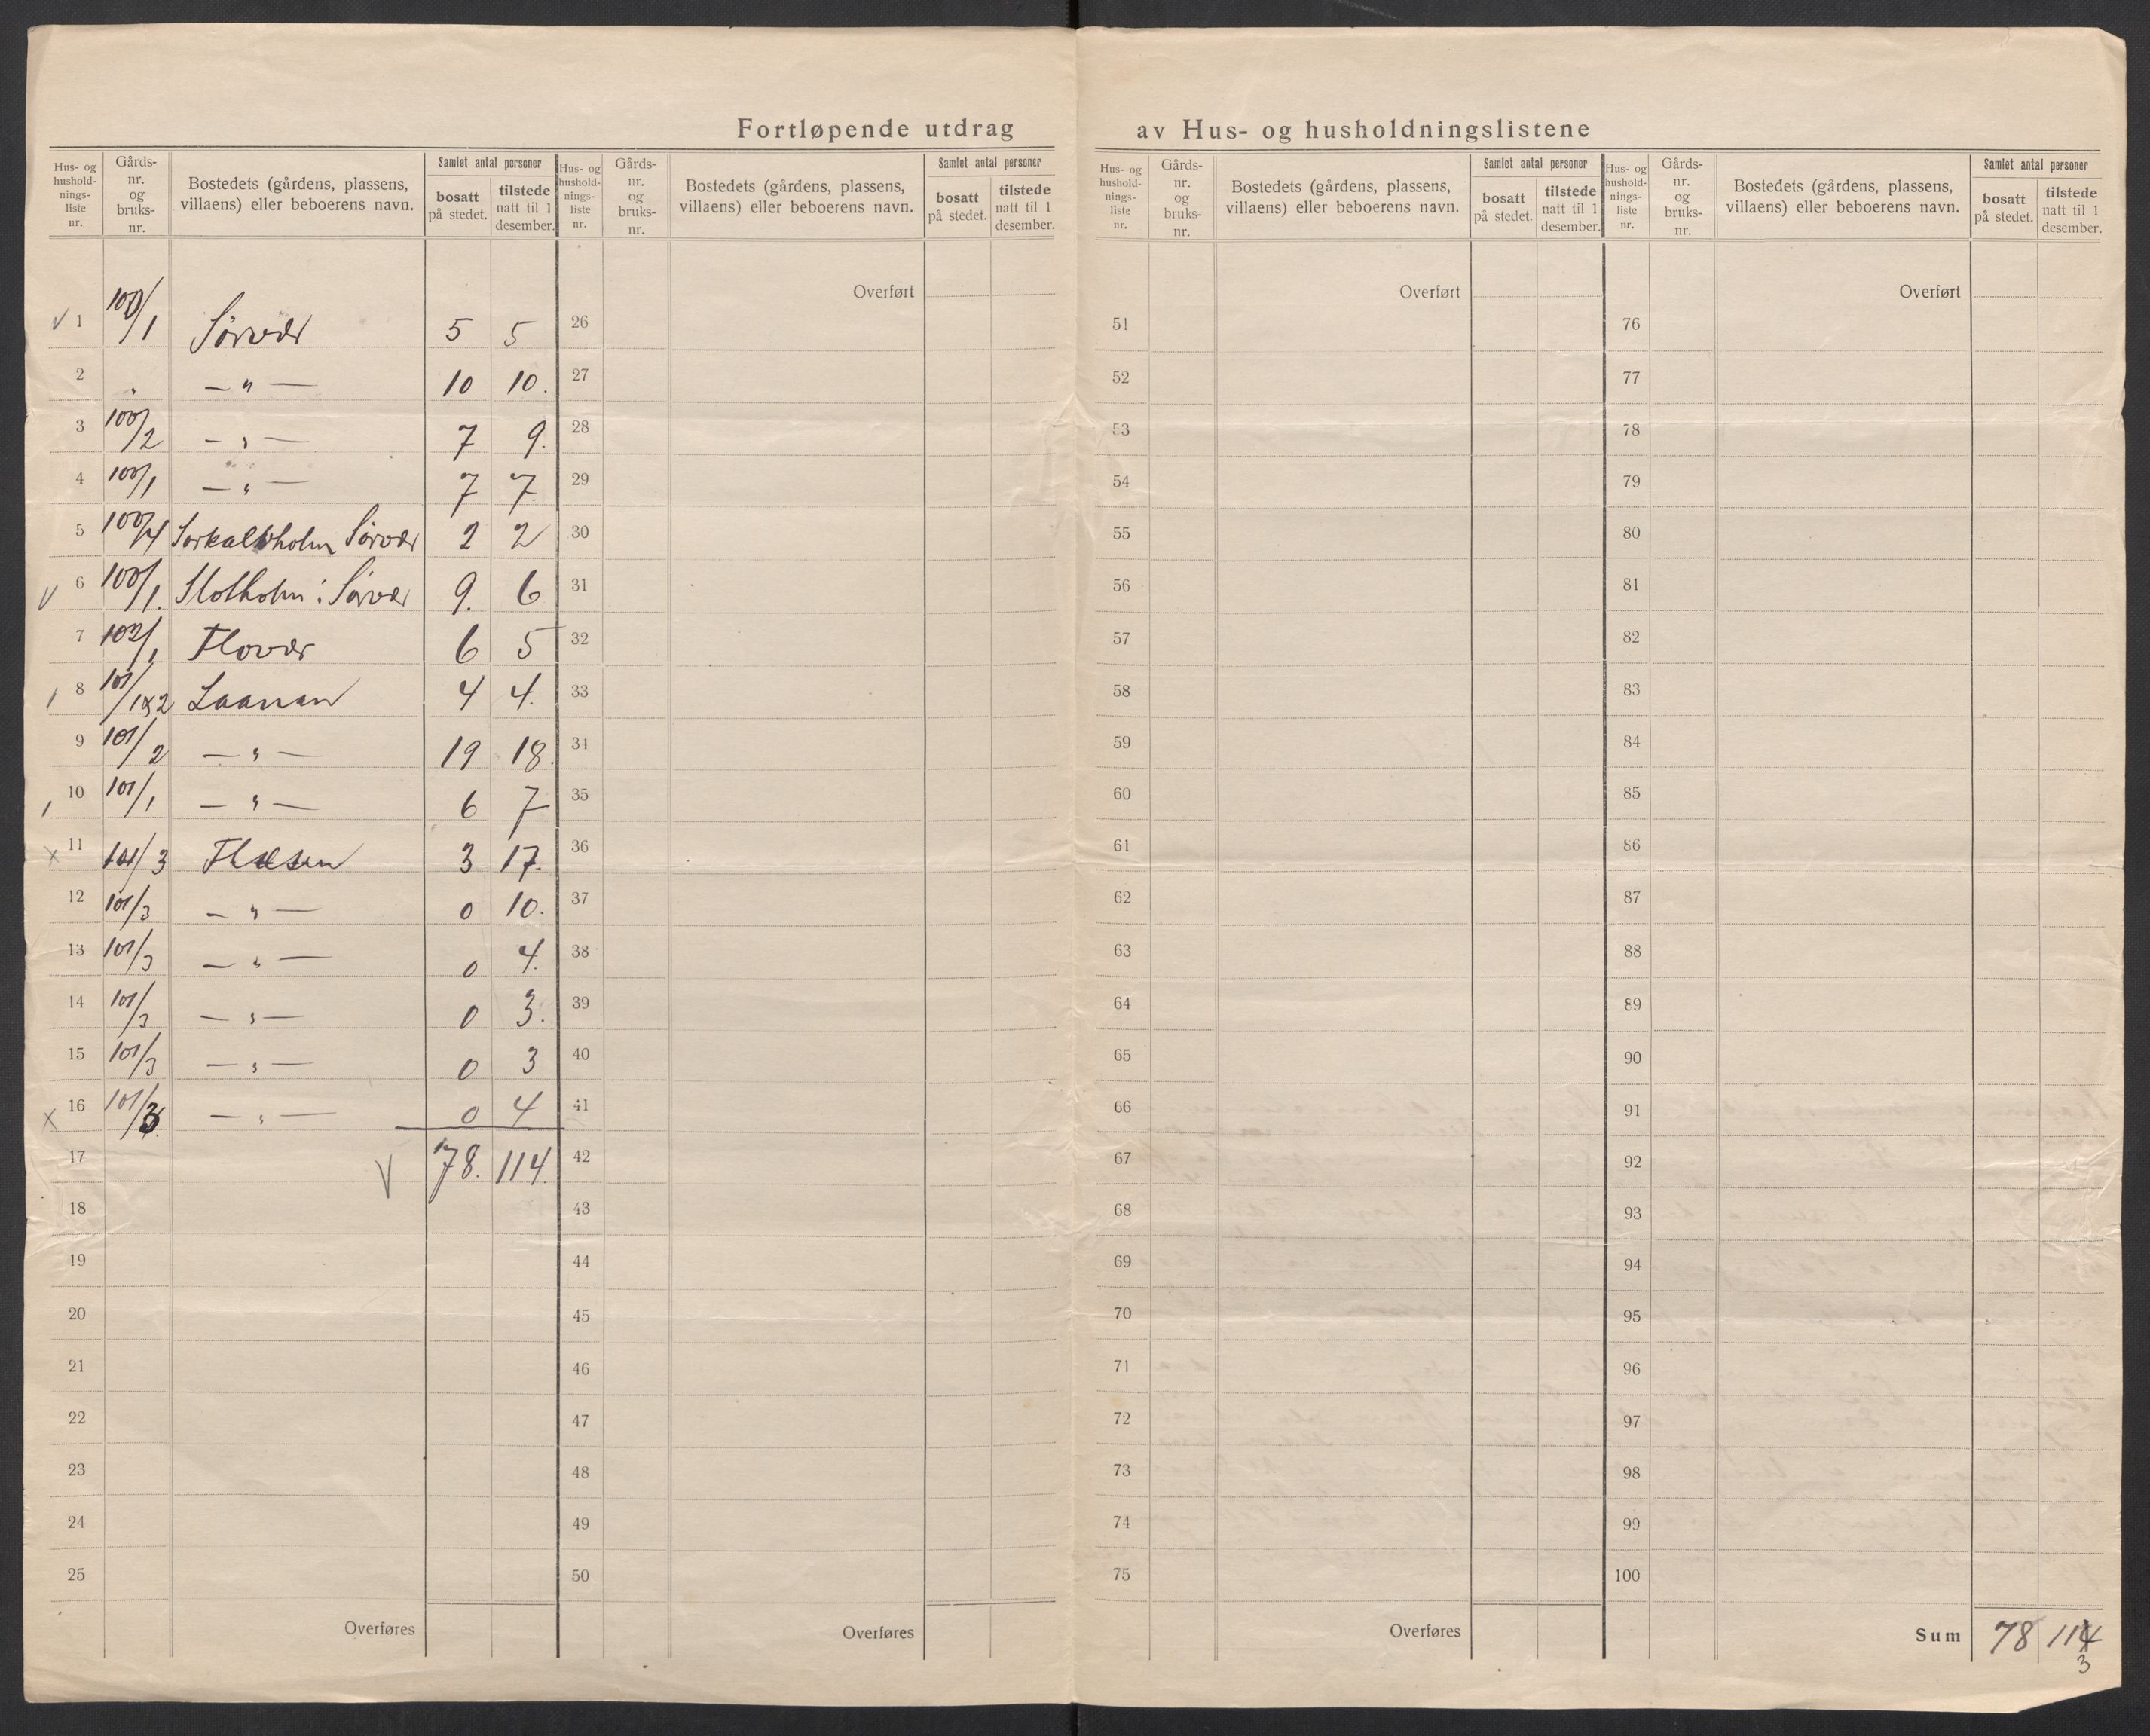 Fortløpende utdrag av Hus- og husholdningslistene
Hus- og hushold-nings-liste nr. Gårds-nr. og bruks-nr. Bostedets (gårdens, plassens, villaens) eller beboerens navn. Samlet antal personer bosatt på stedet. tilstede natt til 1 desember.
Hus- og hushold-nings-liste nr. Gårds-nr. og bruks-nr. Bostedets (gårdens, plassens, villaens) eller beboerens navn. Samlet antal personer bosatt på stedet. tilstede natt til 1 desember.
Hus- og hushold-nings-liste nr. Gårds-nr. og bruks-nr. Bostedets (gårdens, plassens, villaens) eller beboerens navn. Samlet antal personer bosatt på stedet. tilstede natt til 1 desember.
Hus- og hushold-nings-liste nr. Gårds-nr. og bruks-nr. Bostedets (gårdens, plassens, villaens) eller beboerens navn. Samlet antal personer bosatt på stedet. tilstede natt til 1 desember.
Overført Overført Overført
√ 1 100/1 Sørvær 5 5 26 51 76
2 " — " — 10 10. 27 52 77
3 100/2 — " — 7 9. 28 53 78
4 100/1 — " — 7 7 29 54 79
5 100/4 Sørvær 2 2 30 55 80
√ 6 100/1. Slotholm i Sørvær 9. 6 31 56 81
7 102/1 Flovær 6 5 32 57 82
8 101/1&2 Laanan 4 4. 33 58 83
9 101/2 — " — 19 18. 34 59 84
10 101/1 — " — 6 7 35 60 85
x 11 101/3 Flæsen 3 17. 36 61 86
12 101/3 — " — 0 10. 37 62 87
13 101/3 — " — 0 4. 38 63 88
14 101/3 — " — 0 3. 39 64 89
15 101/3 — " — 0 3 40 65 90
x 16 101/3 — " — 0 4 41 66 91
17 √ 78. 114. 42 67 92
18 43 68 93
19 44 69 94
20 45 70 95
21 46 71 96
22 47 72 97
23 48 73 98
24 49 74 99
25 50 75 100
Overføres Overføres Overføres Sum 78 114
3